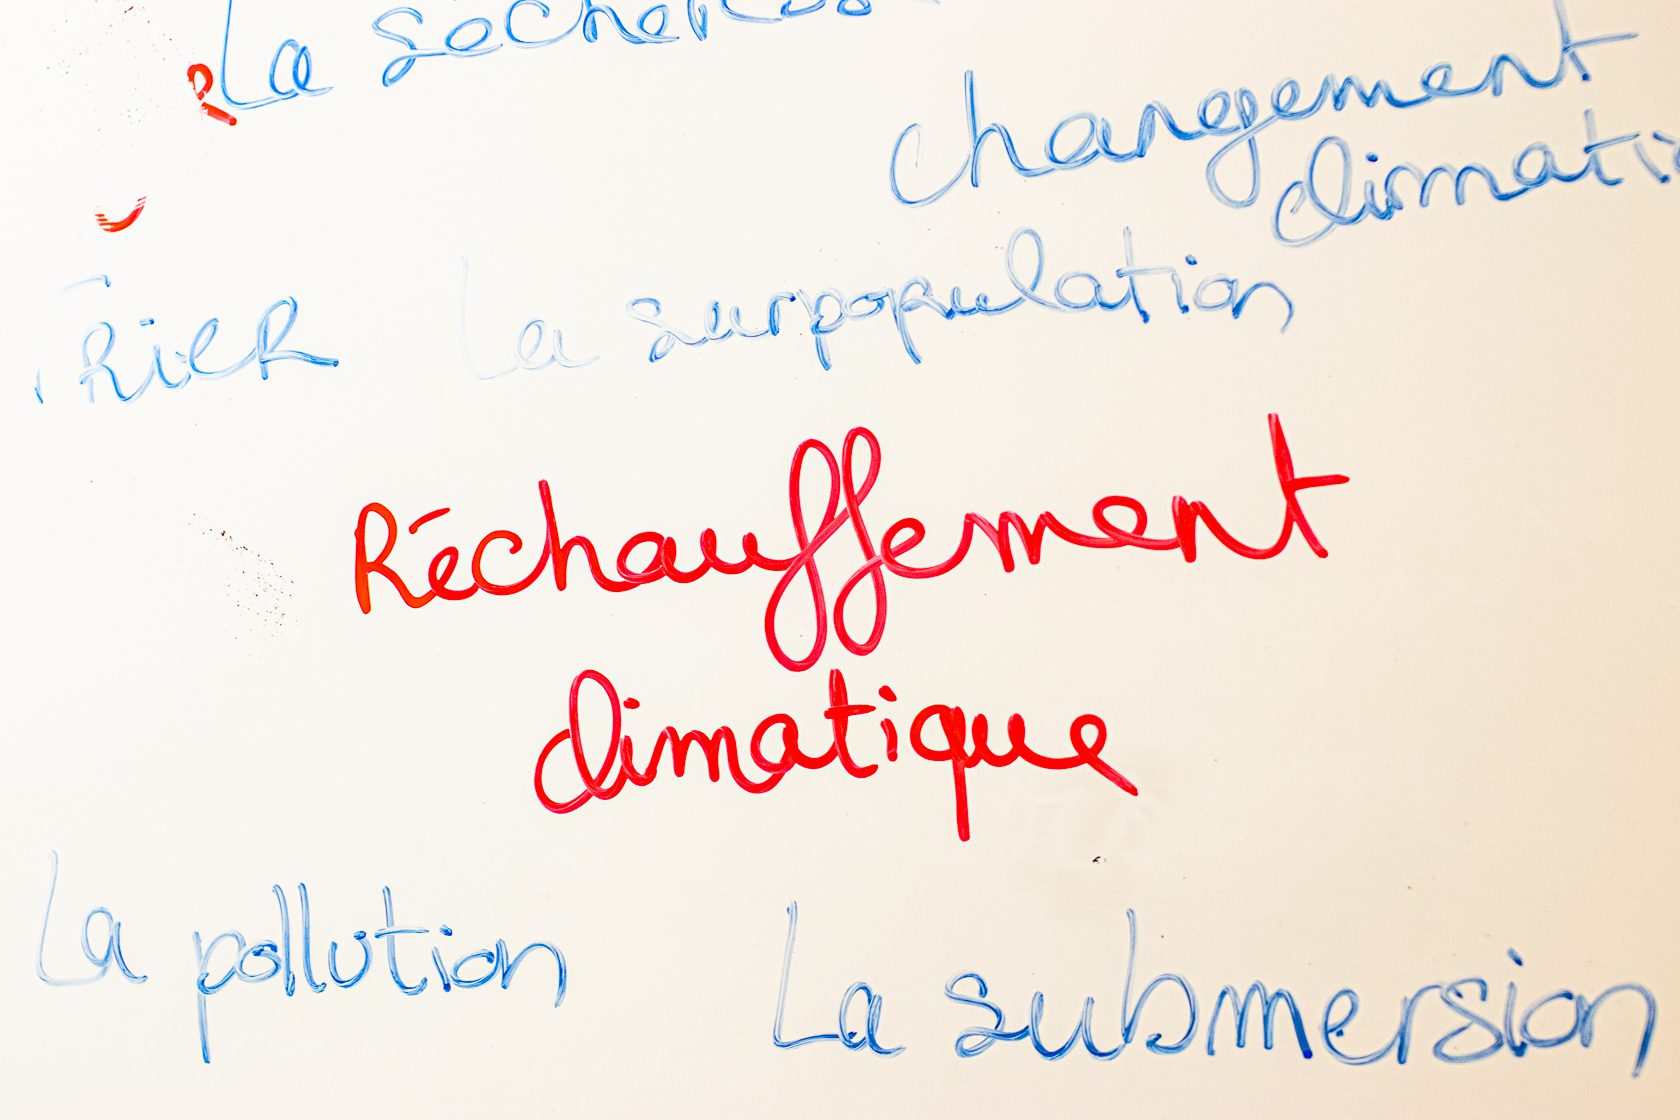 La
changement
climati
TRIER
La surpopulation
Réchauffement
climatique
La pollution
La submersion